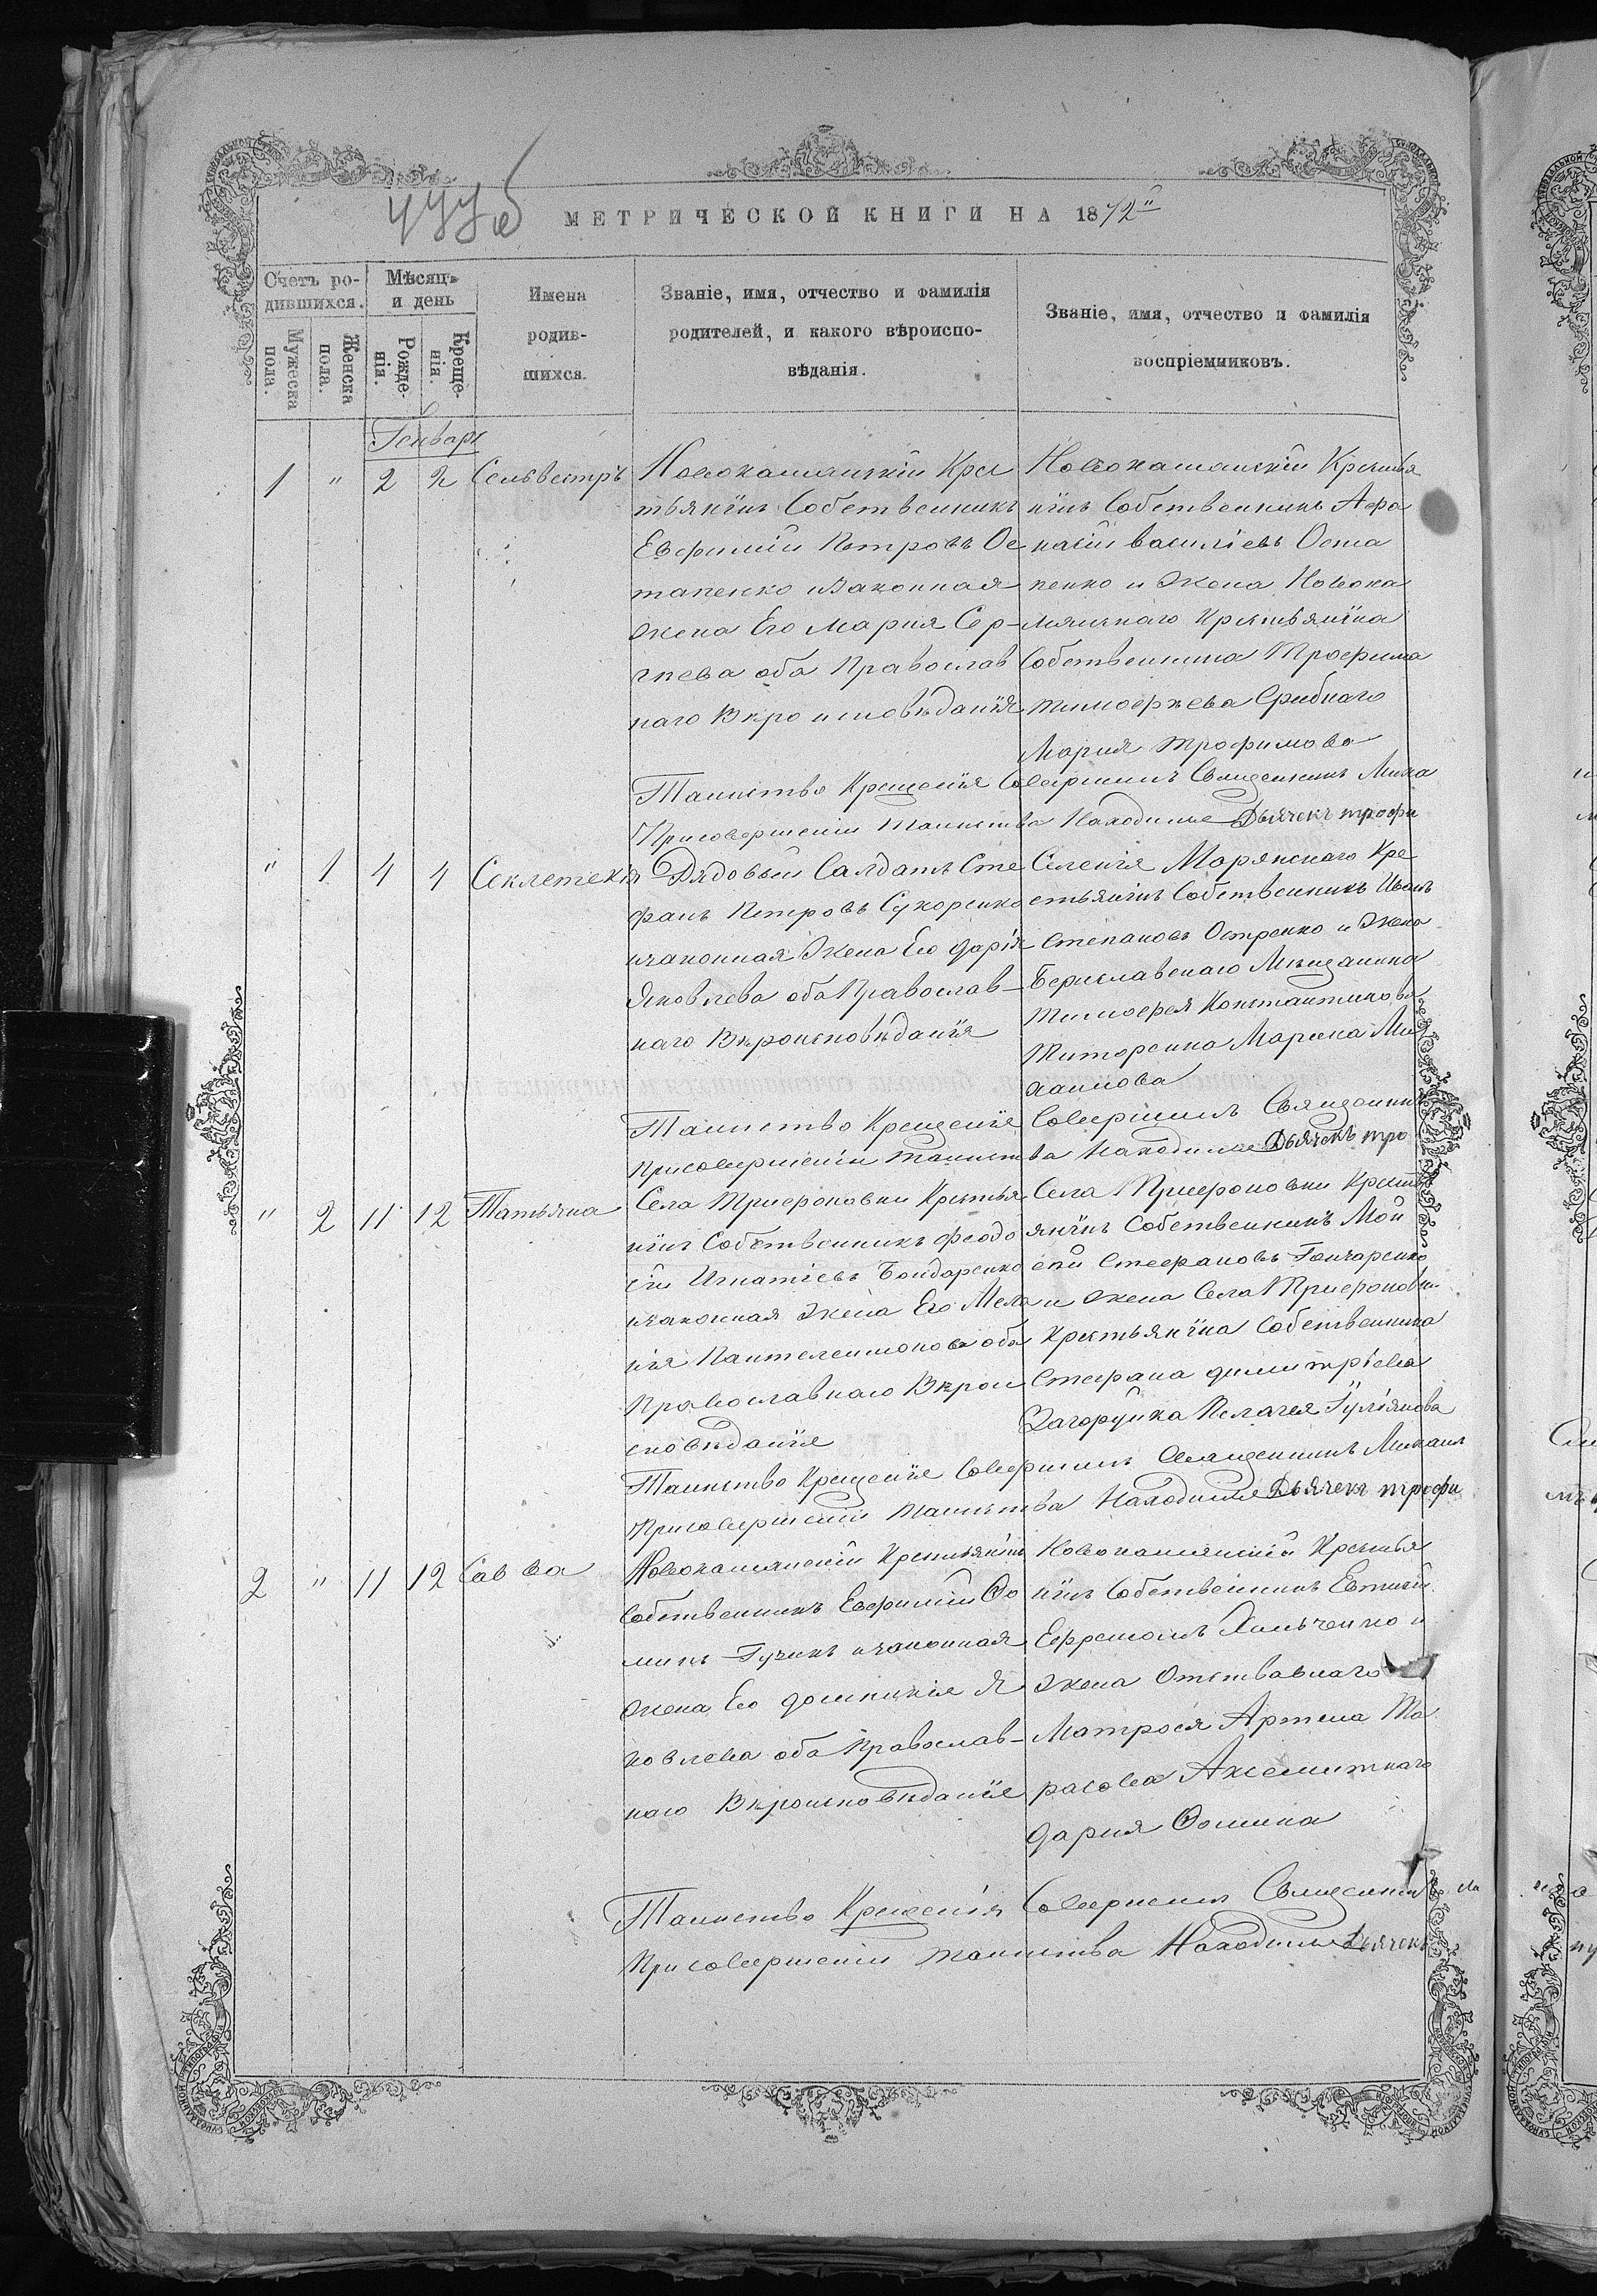 МЕТРИЧЕСКОЙ КНИГИ НА 1872й
Счетъ родившихся.
Мужеска пола.
Женска пола.
Мѣсяцъ и день
Рожденія.
Крещенія.
Имена родившихся.
Званіе, имя, отчество и фамилія родителей, и какого вѣроисповѣданія.
Званіе, имя, отчество и фамилія воспріемниковъ.
Генварь
1 " 2 2 Сельвестръ
Новокамянскій Крес
тьянинъ Собственникъ
Евфимій Петровъ Ос
тапенко изаконная
жена Его Мария Сер-
гнева оба Православ
наго Вѣро исповѣданія
Новокаманскій Крестья
нинъ Собственникъ Афа
насій василіевъ Оста
пенко и Жена Новока
мянскаго Крестьянина
Собственника Трофима
тимофѣева Срибнаго
Мария трофимова
Таинство Крещенія Совершилъ Священникъ Миха
Присовершеніи таинства Находился Дьячекъ трофи
" 1 4 4 Секлетекія
Рядовый Салдатъ Сте
фанъ Петровъ Сукоренко
изаконная Жена Его дарія
Яковлева оба Православ-
наго Вѣроисповѣданія
Селенія Морянскаго Кре
стьянинъ Собственникъ Иванъ
Степановъ Остренко и Жена
Бериславскаго Мѣщанина
Тимофея Константинова
Титоренко Марина Ми
хаилова
Таинство Крещенія Совершилъ Священник
Присовершеніи таинства Находился Дьячекъ тро
" 2 11 12 Татьяна
Села Триероновки Крестья
нинъ Собственникъ феодо
сій Игнатіевъ Бондаренко
изаконная жена Его Мела
нія Пантелеимонова оба
Православнаго Вѣрои
сповѣданія
Села Триероновки Крест
янинъ Собственникъ Мои
сей Стефановъ Гончаренко
и жена Села Триероновки
Крестьянина Собственника
Стефана димитріева
Загоруйка Пелагея Гуліянова
Таинство Крещенія Совершилъ Священникъ Михаил
Присовершеніи таинства Находился Дьячекъ трофи
2 " 11 12 Савва
Новокамянскій Крестьянинъ
Собственникъ Евфимій Фо
минъ Гучикъ изаконная
жена Его домникія Я
ковлева оба Православ-
наго Вѣроисповѣданія
Новокамянскій Крестья
нинъ Собственникъ Евтихій
Ефремовъ Хильченко и
жена Отставнаго
Матроса Артема Та
расова Аксемитнаго
дария Фомина
Таинство Крещенія Совершилъ Священник
Присовершеніи таинства Находился Дьячекъ